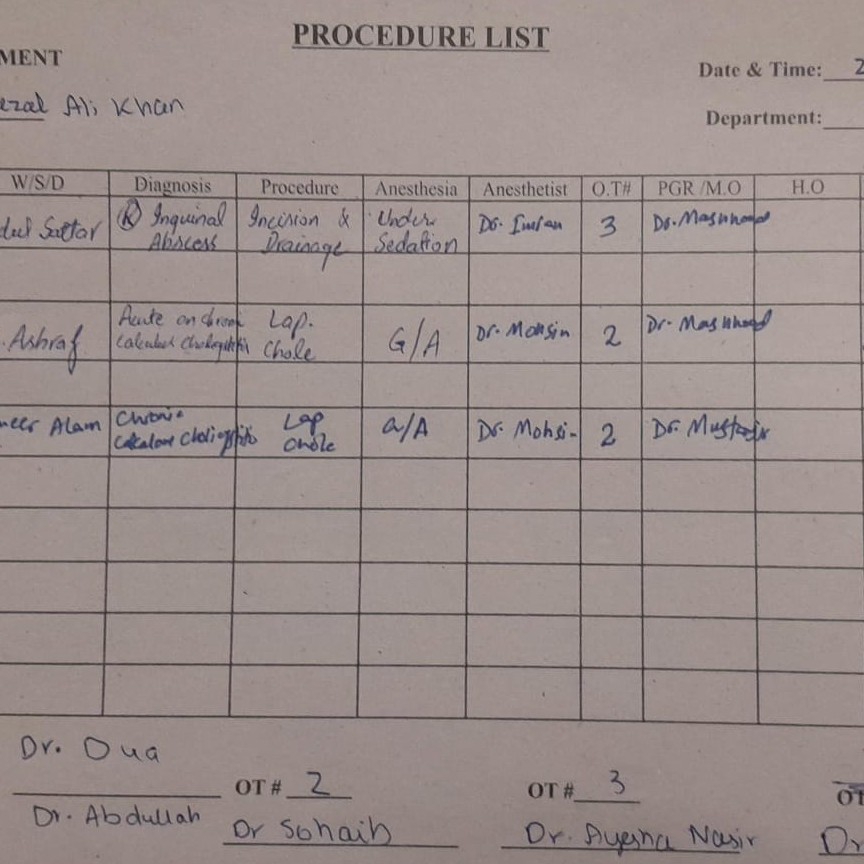 PROCEDURE LIST
MENT
Date & Time: 2
Ali Khan
Department:
W/S/D Diagnosis Procedure Anesthesia Anesthetist O.T# PGR /M.O H.O
Sattar (R) Inguinal Incision & Under Dr. Imran 3 Dr. Mashhood
Abscess Drainage Sedation
Acute on chronic Lap. Dr. Mohsin Dr. Mashhood
. Ashraf Chole G/A 2
meer Alam Chronic Lap G/A Dr. Mohsin 2 Dr.
Chole
Dr. Dua
OT # 2 OT # 3 OT
Dr. Abdullah Dr Sohaib Dr. Ayesha Nasir Dr